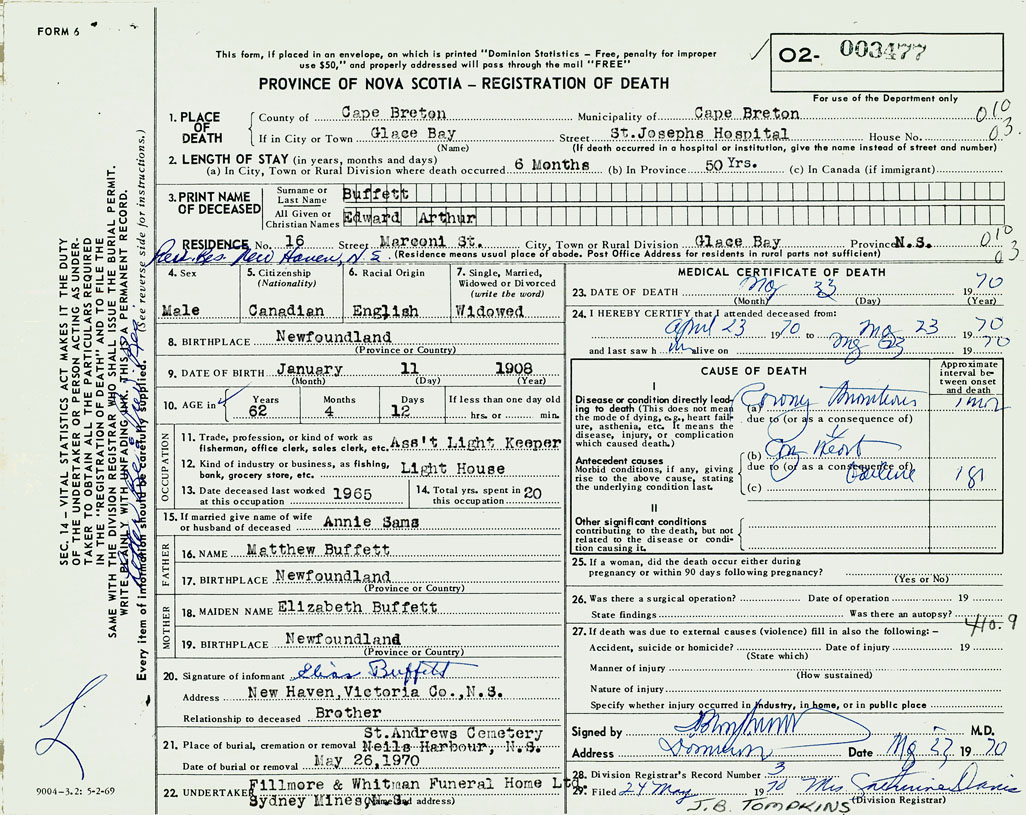 FORM 6
This form, if placed in an envelope, on which is printed "Dominion Statistics – Free, penalty for improper
use $50," and properly addressed will pass through the mail "FREE"
PROVINCE OF NOVA SCOTIA – REGISTRATION OF DEATH
02- 003477
For use of the Department only
1. PLACE OF DEATH County of Cape Breton Municipality of Cape Breton 010
If in City or Town Glace Bay Street St.Josephs Hospital House No. 03.
(Name) (If death occurred in a hospital or institution, give the name instead of street and number)
2. LENGTH OF STAY (in years, months and days)
(a) In City, Town or Rural Division where death occurred 6 Months (b) In Province 50 Yrs. (c) In Canada (if immigrant)
3. PRINT NAME OF DECEASED Surname or Last Name Buffett
All Given or Christian Names Edward Arthur
RESIDENCE No. 16 Street Marconi St. City, Town or Rural Division Glace Bay Province N.S. 010
Res. New Haven, N.S. (Residence means usual place of abode. Post Office Address for residents in rural parts not sufficient) 03
4. Sex
Male
5. Citizenship
(Nationality)
Canadian
6. Racial Origin
English
7. Single, Married,
Widowed or Divorced
(write the word)
Widowed
8. BIRTHPLACE Newfoundland
(Province or Country)
9. DATE OF BIRTH January 11 1908
(Month) (Day) (Year)
10. AGE in Years Months Days If less than one day old
62 4 12 hrs. or min.
OCCUPATION
11. Trade, profession, or kind of work as
fishermon, office clerk, sales clerk, etc. Ass't Light Keeper
12. Kind of industry or business, as fishing,
bank, grocery store, etc. Light House
13. Date deceased last worked 1965
at this occupation
14. Total yrs. spent in 20
this occupation
15. If married give name of wife
or husband of deceased Annie Sams
FATHER
16. NAME Matthew Buffett
17. BIRTHPLACE Newfoundland
(Province or Country)
MOTHER
18. MAIDEN NAME Elizabeth Buffett
19. BIRTHPLACE Newfoundland
(Province or Country)
20. Signature of informant Elias Buffett
Address New Haven,Victoria Co.,N.S.
Relationship to deceased Brother
St.Andrews Cemetery
21. Place of burial, cremation or removal Neils Harbour, N.S.
Date of burial or removal May 26,1970
22. UNDERTAKER Fillmore & Whitman Funeral Home Ltd.
Sydney Mines, N.S. (Name and address)
MEDICAL CERTIFICATE OF DEATH
23. DATE OF DEATH 23 1970
(Month) (Day) (Year)
24. I HEREBY CERTIFY that I attended deceased from:
April 23 1970 to 23 1970
and last saw h im alive on 23 1970
CAUSE OF DEATH
Approximate
interval be-
tween onset
and death
I
Disease or condition directly lead-
ing to death (This does not mean
the mode of dying, e.g., heart fail-
ure, asthenia, etc. It means the
disease, injury, or complication
which caused death.)
(a)
due to (or as a consequence of)
Antecedent causes
Morbid conditions, if any, giving
rise to the above cause, stating
the underlying condition last.
(b)
due to (or as a consequence of)
(c)
II
Other significant conditions
contributing to the death, but not
related to the disease or condi-
tion causing it.
25. If a woman, did the death occur either during
pregnancy or within 90 days following pregnancy?
(Yes or No)
26. Was there a surgical operation? Date of operation 19
State findings Was there an autopsy?
410.9
27. If death was due to external causes (violence) fill in also the following: –
Accident, suicide or homicide? Date of injury 19
(State which)
Manner of injury
(How sustained)
Nature of injury
Specify whether injury occurred in industry, in home, or in public place
Signed by M.D.
Address Dominion Date 1970
28. Division Registrar's Record Number 3
29. Filed 24 May 1970 Mrs Catherine Davis
(Division Registrar)
J.B. TOMPKINS
SEC. 14 – VITAL STATISTICS ACT MAKES IT THE DUTY
OF THE UNDERTAKER OR PERSON ACTING AS UNDER-
TAKER TO OBTAIN ALL THE PARTICULARS REQUIRED
IN THE "REGISTRATION OF DEATH" AND TO FILE THE
SAME WITH THE DIVISION REGISTRAR WHO SHALL ISSUE THE BURIAL PERMIT.
WRITE PLAINLY WITH UNFADING INK, THIS IS A PERMANENT RECORD.
Every item of information should be carefully supplied. (See reverse side for instructions.)
9004-3.2: 5-2-69